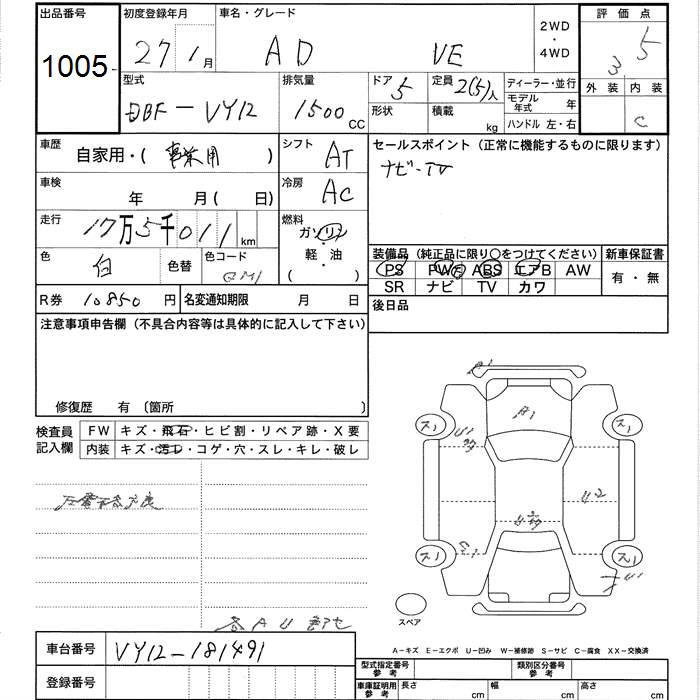 出品番号 初度登録年月 車名・グレード 2WD ・ 4WD 評価点
1005 27 1月 AD VE 3 5
型式 排気量 ドア 5 定員 2(5)人 ディーラー・並行 外装 内装
DBF-VY12 1500 CC 形状 積載 kg モデル年式 年 C
ハンドル 左・右
車歴 自家用・(事業用) シフト AT セールスポイント (正常に機能するものに限ります)
車検 年 月 ( 日) 冷房 AC ナビ-TV
走行 17万5千011km 燃料 ガソリン・軽油 ( )
色 白 色替 色コード QM1
装備品 (純正品に限り○をつけてください) 新車保証書
PS PW ABS エアB AW 有・無
SR ナビ TV カワ
R券 10850円 名変通知期限 月 日 後日品
注意事項申告欄 (不具合内容等は具体的に記入して下さい)
修復歴 有 〔箇所 〕
検査員記入欄 FW キズ・飛石・ヒビ割・リペア跡・X要
内装 キズ・汚レ・コゲ・穴・スレ・キレ・破レ
A1
A1
ス1 ス1
U1
U2
ス1 ス1
スペア
各AU
A-キズ E-エクボ U-凹み W-補修跡 S-サビ C-腐食 XX-交換済
車台番号 VY12-181491
登録番号
型式指定番号 参考 類別区分番号 参考
車庫証明用 参考 長さ cm 幅 cm 高さ cm